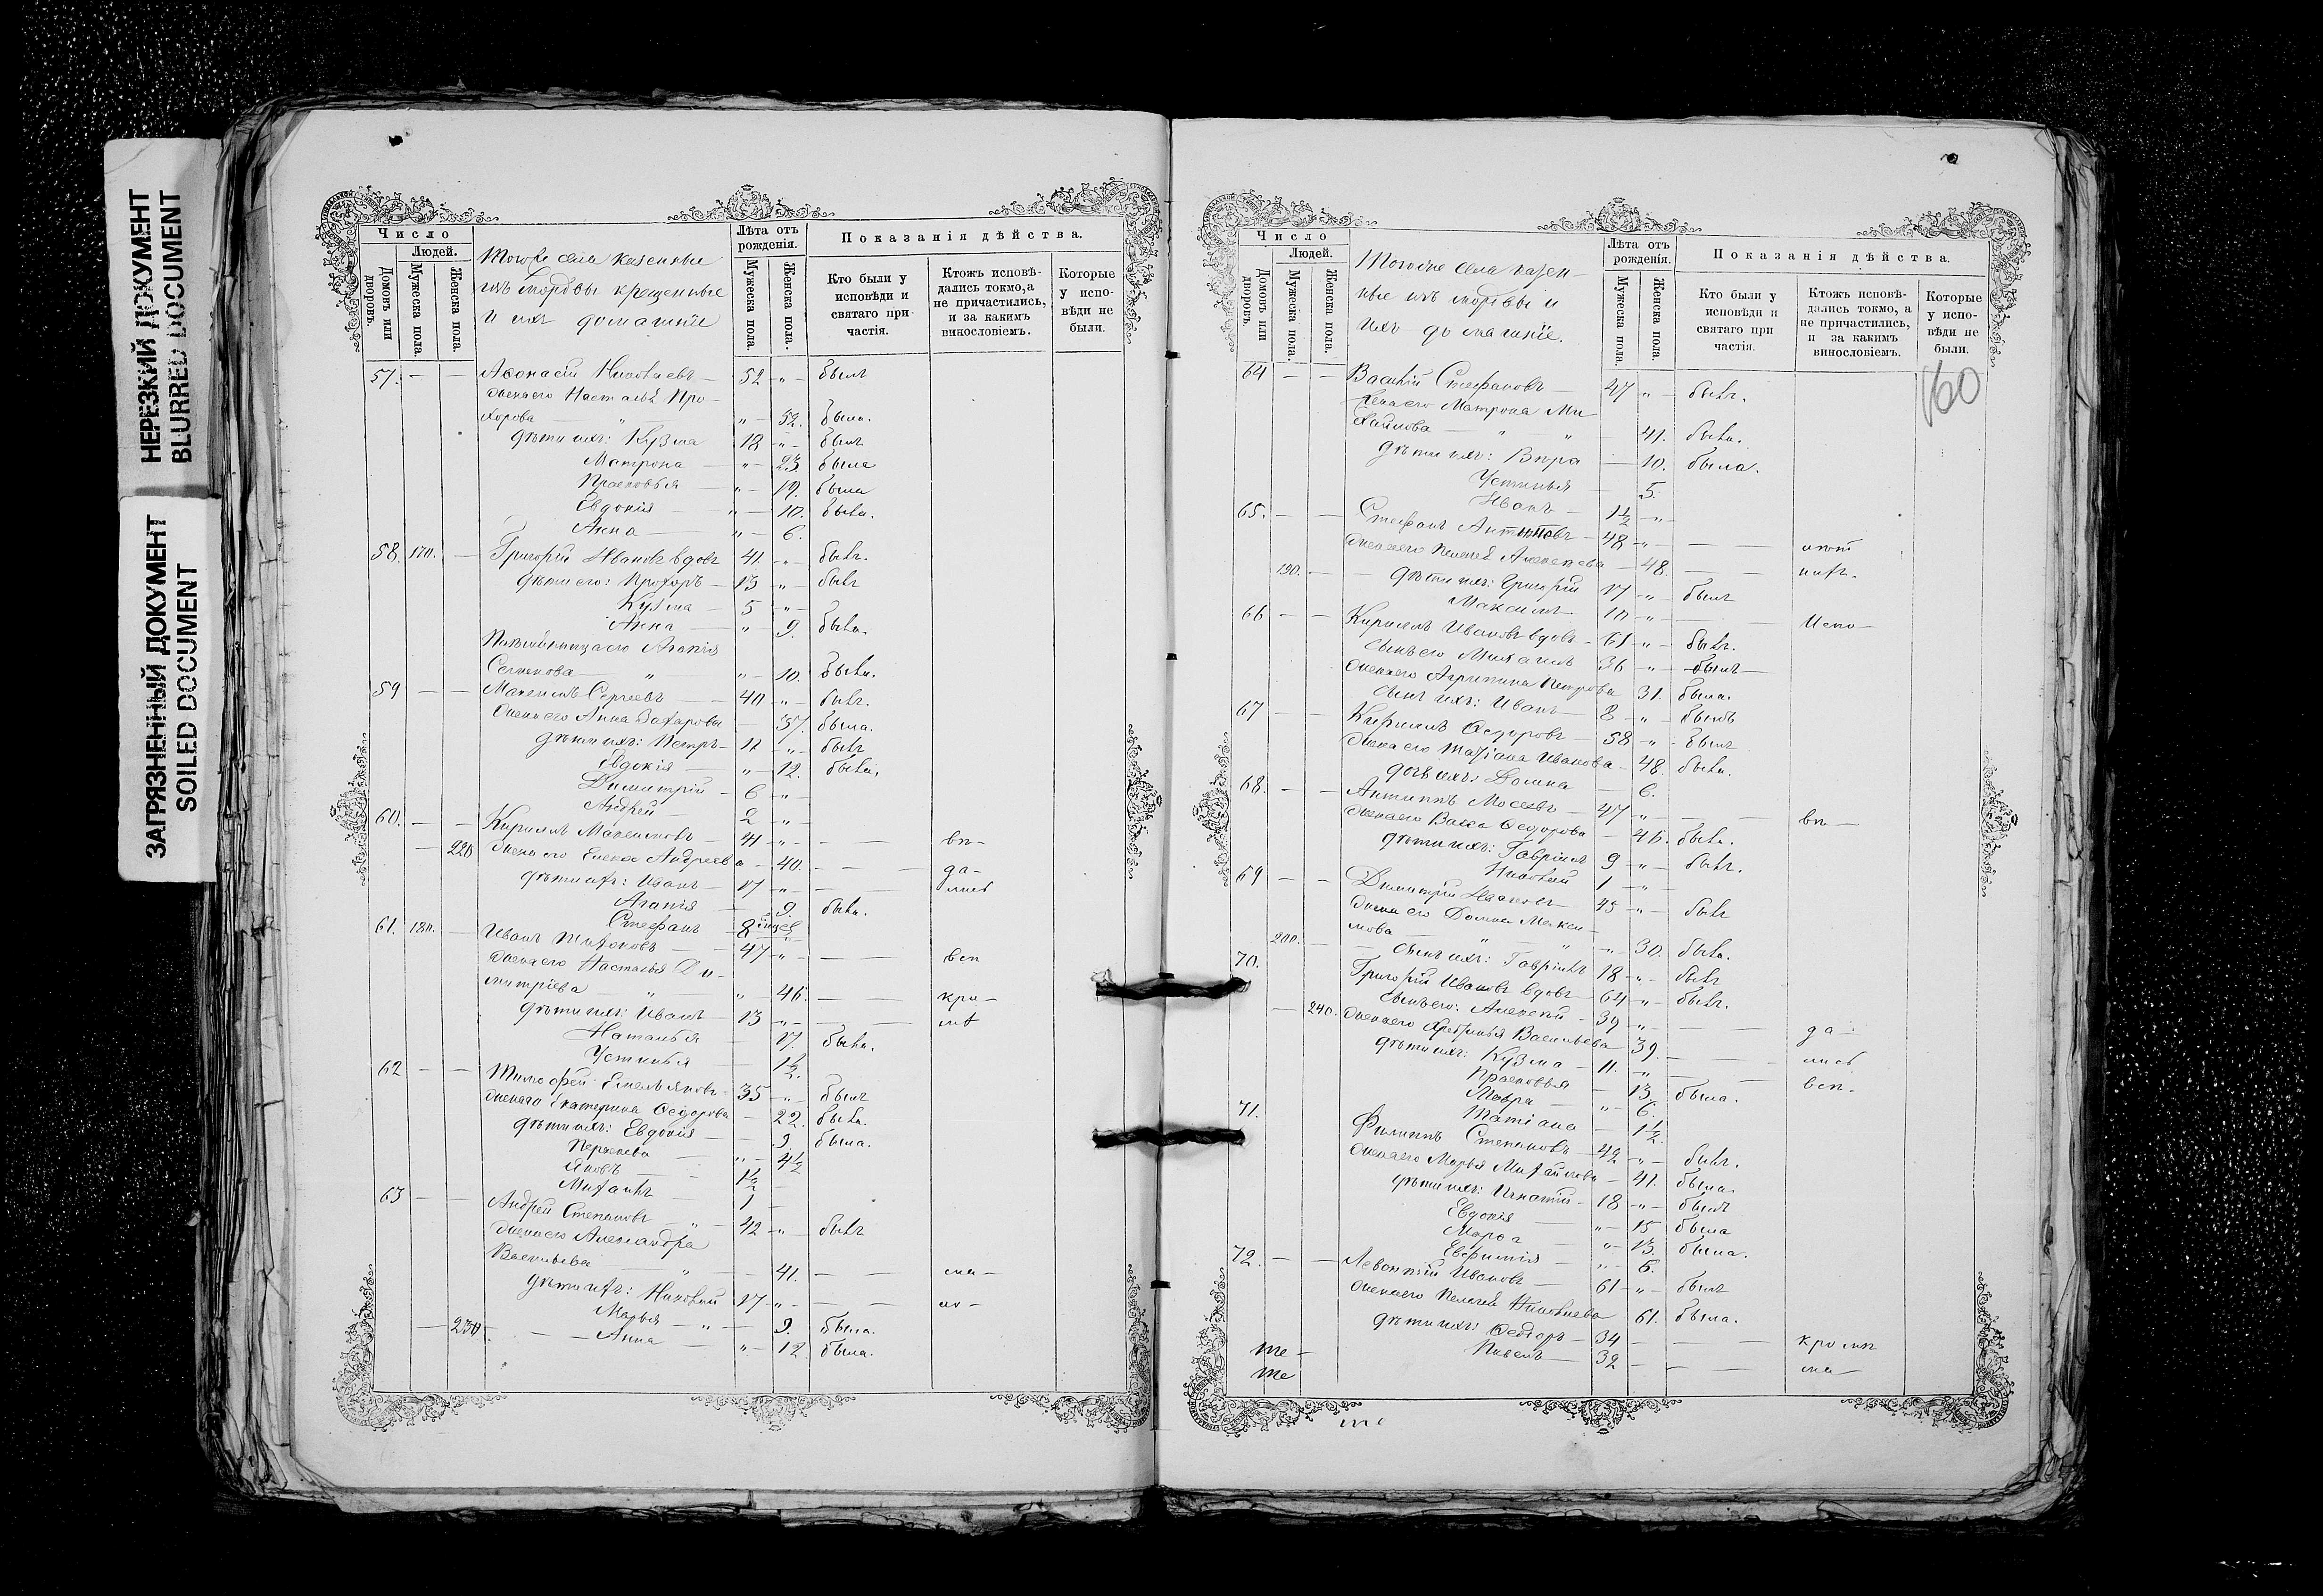 НЕРЕЗКИЙ ДОКУМЕНТ
BLURRED DOCUMENT
ЗАГРЯЗНЕННЫЙ ДОКУМЕНТ
SOILED DOCUMENT
Число
Людей.
Домовъ или дворовъ.
Мужеска пола.
Женска пола.
Тогоже села казенные
изъ мордвы крещенные
и ихъ домашніе
Лѣта отъ рожденія.
Мужеска пола.
Женска пола.
Показанія дѣйства.
Кто были у исповѣди и святаго при-частія.
Ктожъ исповѣ-дались токмо, а не причастились, и за какимъ винословіемъ.
Которые у испо-вѣди не были.
57. — — Аѳонасій Николаевъ — 52 - „ - былъ
жена его Настасья Про-
хорова — „ „ - 52. была.
дѣти ихъ: Кузма 18 - „ - былъ
Матрона — „ - 23 была
Прасковья — „ - 19. была
Евдокія — „ - 10. была.
Анна — „ - 6.
58. 170. — Григорій Ивановъ вдовъ 41. - „ - былъ.
дѣти его: Прохоръ — 13 - „ - былъ
Кузма — 5 - „ -
Анна — „ - 9. была.
Племянница его Агапія
Семенова — „ „ - 10. была.
59 — — Максимъ Сергѣевъ — 40 - „ - былъ.
жена его Анна Захарова — 37. была.
дѣти ихъ: Петръ — 12 - „ - былъ
Евдокія — „ - 12. была.
Димитрій — 6 - „ -
Андрей — 2 - „ -
60. — — Кириллъ Максимовъ — 41 - „ - — — вп-
— 220 жена его Елена Андреева - 40. — — да-
дѣти ихъ: Иванъ — 17 - „ - — — лись
Агапія — 9. была.
Стефанъ — 8
61. 180. — Иванъ Тихоновъ — 47 - „ - — — всп
жена его Настасья Ди-
митріева — „ „ - 46. — — кро-
дѣти ихъ: Иванъ — 13 - „ - — — мѣ
Наталья — 17. была.
Устинья — 1½.
62 — — Тимофей Емельяновъ 35 - „ - былъ
жена его Екатерина Ѳедорова — 22. была.
дѣти ихъ: Евдокія — 9. была.
— „ - 4½
Яковъ — 1½
Михаилъ — 1 -
63 — — Андрей Степановъ — 42 - „ - былъ
жена его Александра
Васильева — „ — 41. — — ма-
дѣти ихъ: Николай 17 - „ - — —
Марья — „ — 9. была.
— 230 — — Анна — „ - 12 была.
160
Число
Людей.
Домовъ или дворовъ.
Мужеска пола.
Женска пола.
Тогоже села казен-
ные изъ мордвы и
ихъ домашніе.
Лѣта отъ рожденія.
Мужеска пола
Женска пола.
Показанія дѣйства.
Кто были у исповѣди и святаго при частія.
Ктожъ исповѣ-дались токмо, а не причастились, и за какимъ винословіемъ.
Которые у испо-вѣди не были.
64 — — Василій Стефановъ — 47 „ - былъ.
жена его Матрона Ми-
хайлова — „ „ — 41. была.
дѣти ихъ: Вѣра — 10. была.
Устинья — 5.
Иванъ — 1½ - „ -
65. — — Стефанъ Антиповъ — 48 - „ - — —
жена его Пелагея Алексеева — 48. — —
190. — — дѣти ихъ: Григорій 17 - „ - былъ
Максимъ 10 - „ - — Испо—
66 — — Кириллъ Ивановъ вдовъ - 61 - „ - былъ.
сынъ его Михаилъ 36 - „ - былъ —
жена его Агрипина Петрова 31. была.
сынъ ихъ: Иванъ — 8 - „ - былъ
67 — — Кириллъ Ѳедоровъ — 58 - „ - былъ
жена его Татіана Иванова - 48. была.
дочь ихъ: Домна — 6.
68. — — Антипъ Мосеевъ — 47 - „ - — — вп —
жена его Васса Ѳедорова — 46. была.
дѣти ихъ: Гавріилъ 9 - „ - былъ.
Николай 1 - „
69 — — Димитрій Ивановъ 45 - „ - былъ
жена его Домна Макси-
мова — „ „ - 30. была.
200. — — сынъ ихъ: Гавріилъ 18 - „ - былъ
70. Григорій Ивановъ вдовъ — 64 - „ - былъ.
— 240. сынъ его: Алексей — 39 - „ - — да -
жена его Васильева — 39. — — лись
дѣти ихъ: Кузма — 11. „ — — всп -
Прасковья — 13. была.
Мавра — „ - 6.
Татіана — 1½.
71. Филиппъ Степановъ — 42 - „ - былъ.
жена его Марья Михайлова — 41. была.
дѣти ихъ: Игнатій - 18 - „ - былъ
Евдокія — „ - 15 была
Марѳа — „ - 13. была.
Евфимія — „ - 6.
72. — — Левонтій Ивановъ — 61 - „ - былъ
жена его Пелагея 61. была.
дѣти ихъ: Ѳедоръ — 34 - — —
Павелъ — 32 - — — ма—
те -
те
те